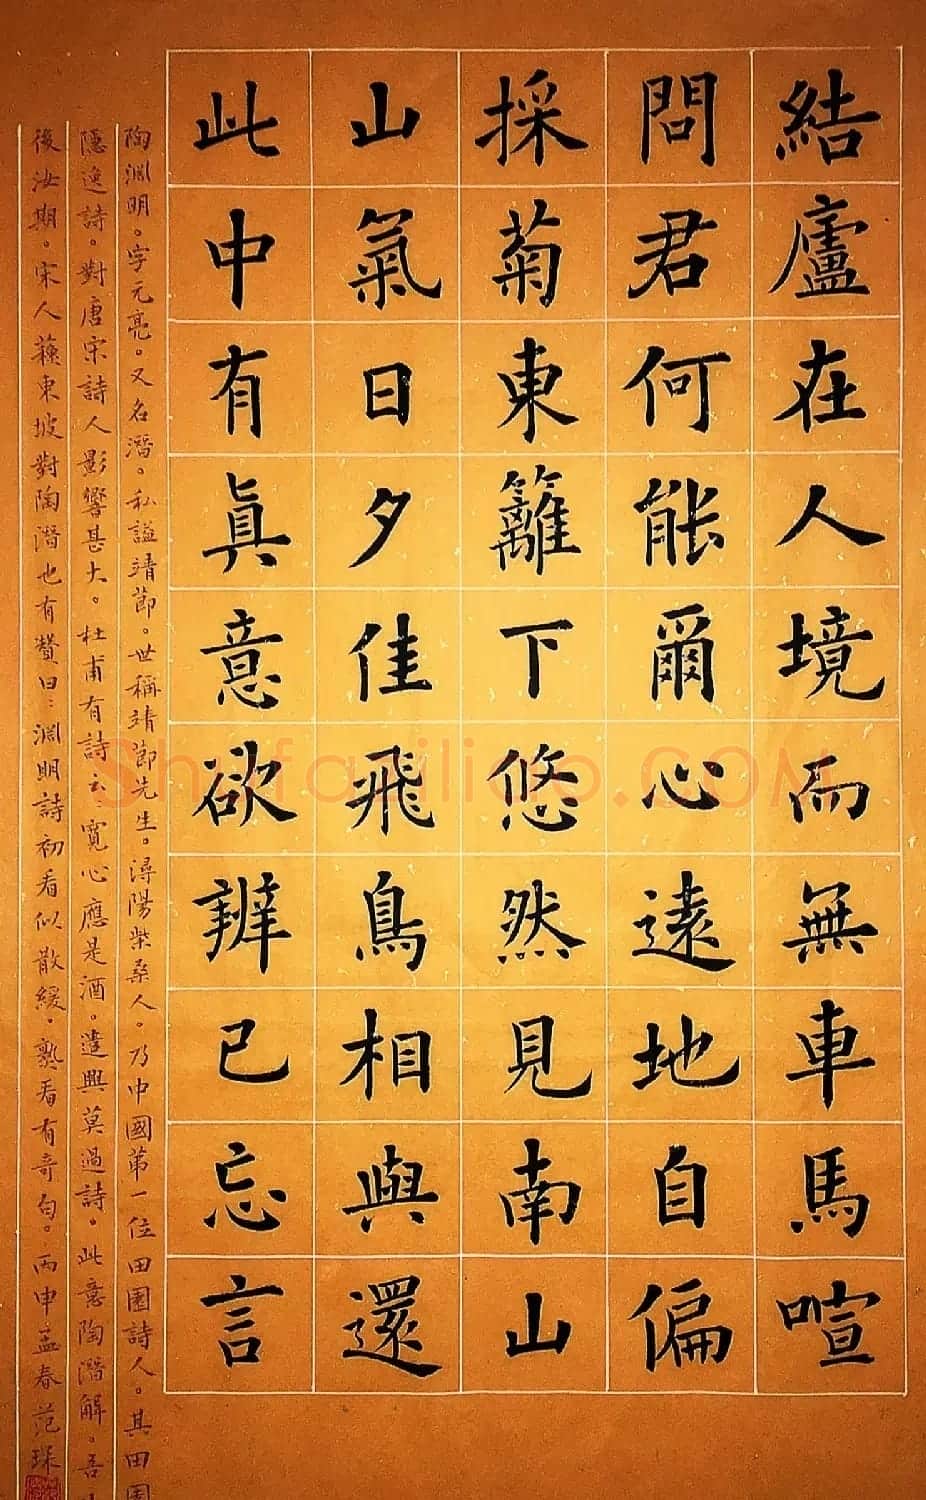 結廬在人境而無車馬喧
問君何能爾心遠地自偏
採菊東籬下悠然見南山
山氣日夕佳飛鳥相與還
此中有真意欲辨已忘言
陶淵明。字元亮。又名潛。私謚靖節。世稱靖節先生。潯陽柴桑人。乃中國第一位田園詩人。其田園
隱逸詩。對唐宋詩人影響甚大。杜甫有詩云寬心應是酒。遣興莫過詩。此意陶潛解。吾
後汝期。宋人蘇東坡對陶潛也有贊曰：淵明詩初看似散緩，熟看有奇句。丙申孟春范琛